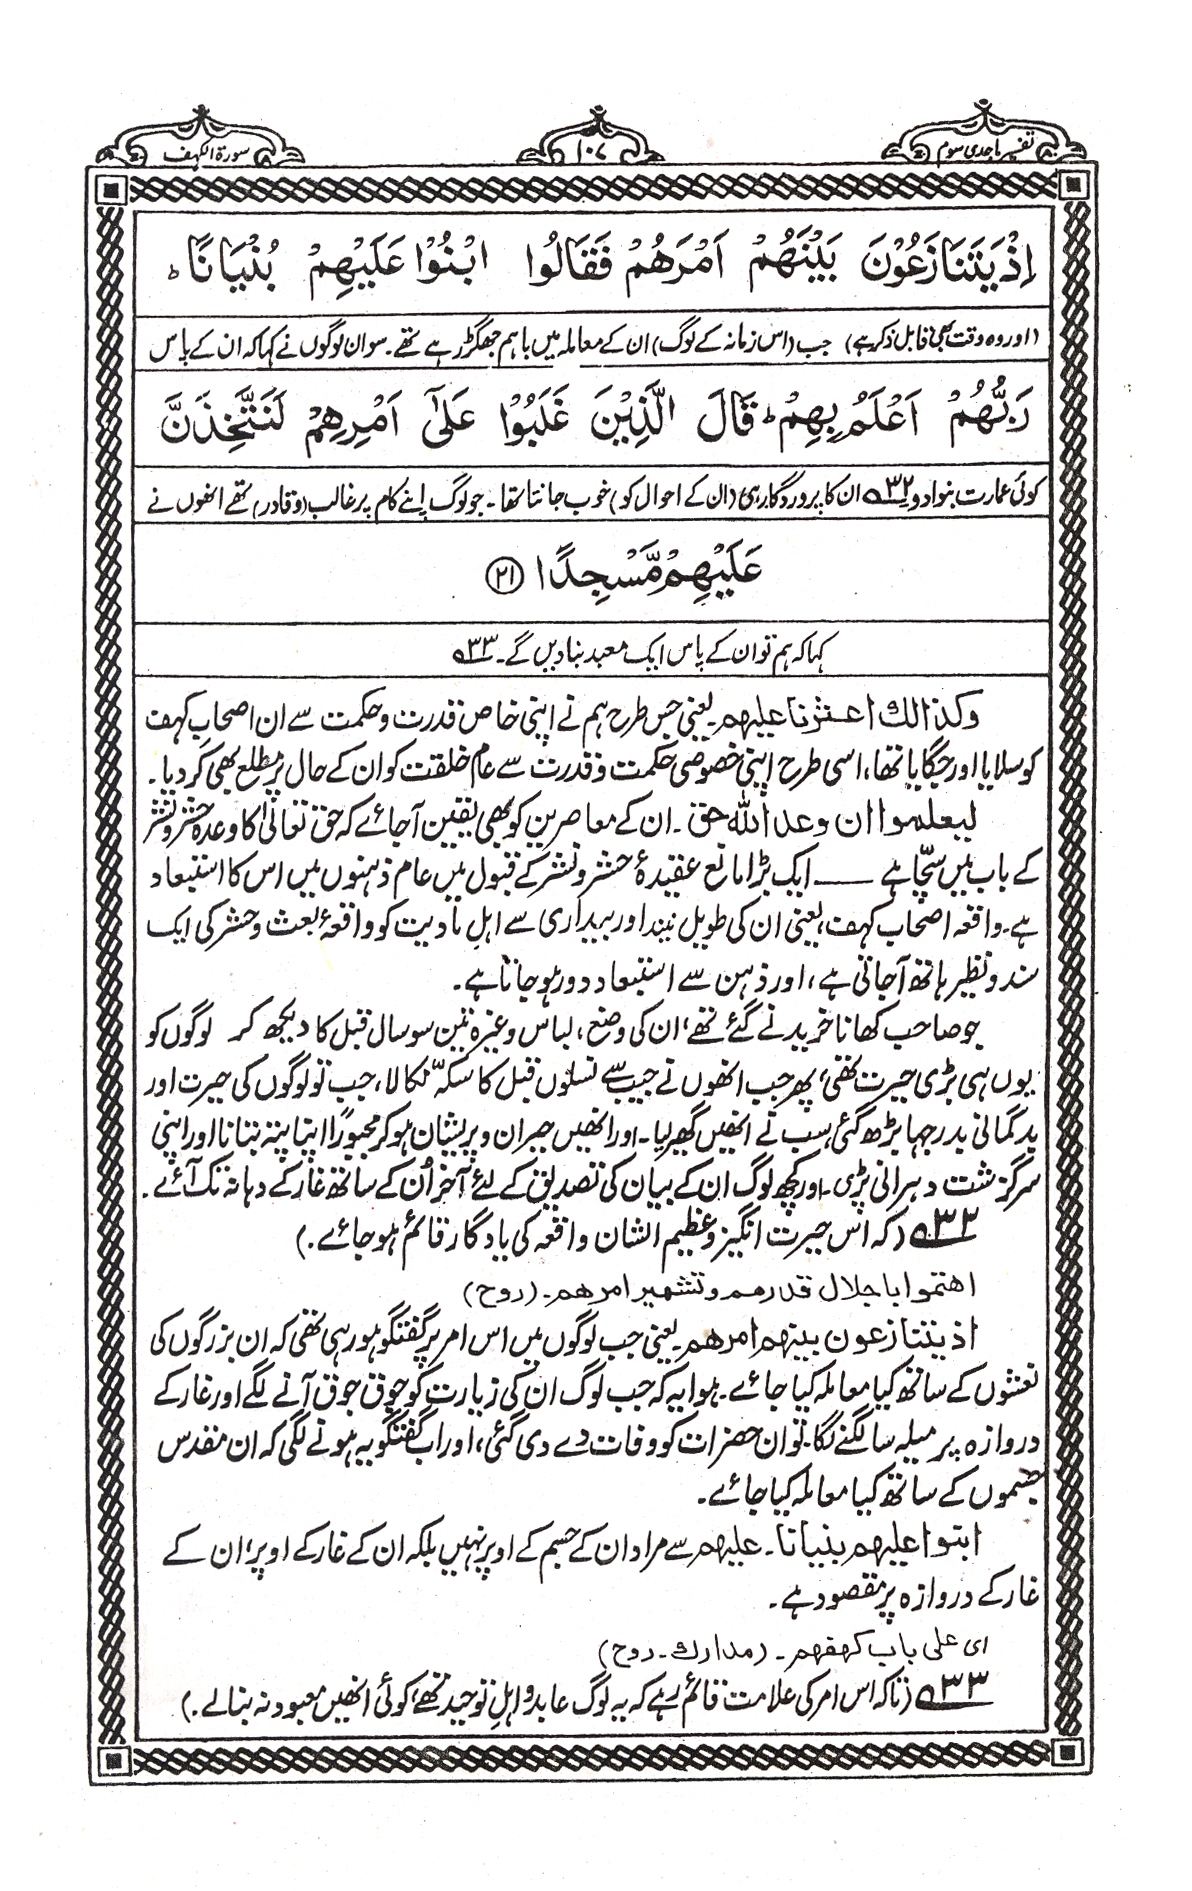 تفسیر ماجدی سوم
۱۰۷
سورۃ الکہف
اِذْ یَتَنَازَعُوْنَ بَیْنَهُمْ اَمْرَهُمْ فَقَالُوا ابْنُوْا عَلَیْهِمْ بُنْیَانًا ؕ
(اور وہ وقت بھی قابل ذکر ہے) جب (اس زمانہ کے لوگ) ان کے معاملہ میں باہم جھگڑ رہے تھے۔ سو ان لوگوں نے کہا کہ ان کے پاس
رَبُّهُمْ اَعْلَمُ بِهِمْ ؕ قَالَ الَّذِیْنَ غَلَبُوْا عَلٰۤی اَمْرِهِمْ لَنَتَّخِذَنَّ
کوئی عمارت بنوا دو ۳۲؂ ان کا پروردگار ہی (ان کے احوال کو) خوب جانتا تھا۔ جو لوگ اپنے کام پر غالب (و قادر) تھے انھوں نے
عَلَیْهِمْ مَّسْجِدًا ﴿۲۱﴾
کہا کہ ہم تو ان کے پاس ایک معبد بنا دیں گے۔ ۳۳؂
وکذالك اعثرنا علیهم۔ یعنی جس طرح ہم نے اپنی خاص قدرت و حکمت سے ان اصحابِ کہف
کو سلایا اور جگایا تھا، اسی طرح اپنی خصوصی حکمت و قدرت سے عام خلقت کو ان کے حال پر مطلع بھی کر دیا۔
لیعلموا ان وعد اللہ حق۔ ان کے معاصرین کو بھی یقین آ جائے کہ حق تعالیٰ کا وعدہ حشر و نشر
کے باب میں سچّا ہے ــــــ ایک بڑا مانع عقیدۂ حشر و نشر کے قبول میں عام ذہنوں میں اس کا استبعاد
ہے۔ واقعہ اصحاب کہف، یعنی ان کی طویل نیند اور بیداری سے اہلِ مادیت کو واقعۂ بعث و حشر کی ایک
سند و نظیر ہاتھ آ جاتی ہے، اور ذہن سے استبعاد دور ہو جاتا ہے۔
جو صاحب کھانا خریدنے گئے تھے، ان کی وضع، لباس وغیرہ تین سو سال قبل کا دیکھ کر لوگوں کو
یوں ہی بڑی حیرت تھی، پھر جب انھوں نے جیب سے نسلوں قبل کا سکّہ نکالا، جب تو لوگوں کی حیرت اور
بدگمانی بدرجہا بڑھ گئی، سب نے انھیں گھیر لیا۔ اور انھیں حیران و پریشان ہو کر مجبورًا اپنا پتہ بتانا اور اپنی
سرگزشت دہرانی پڑی۔ اور کچھ لوگ ان کے بیان کی تصدیق کے لئے آخر اُن کے ساتھ غار کے دہانہ تک آئے۔
۳۲؂ (کہ اس حیرت انگیز و عظیم الشان واقعہ کی یادگار قائم ہو جائے۔)
اهتموا باجلال قدرهم وتشهیر امرهم۔ (روح)
اذ یتنازعون بینهم امرهم۔ یعنی جب لوگوں میں اس امر پر گفتگو ہو رہی تھی کہ ان بزرگوں کی
نعشوں کے ساتھ کیا معاملہ کیا جائے۔ ہوا یہ کہ جب لوگ ان کی زیارت کو جوق جوق آنے لگے اور غار کے
دروازہ پر میلہ سا لگنے لگا۔ تو ان حضرات کو وفات دے دی گئی، اور اب گفتگو یہ ہونے لگی کہ ان مقدس
جسموں کے ساتھ کیا معاملہ کیا جائے۔
ابنوا علیهم بنیانا۔ علیهم سے مراد ان کے جسم کے اوپر نہیں بلکہ ان کے غار کے اوپر، ان کے
غار کے دروازہ پر مقصود ہے۔
ای علی باب کهفهم۔ (مدارك۔ روح)
۳۳؂ (تاکہ اس امر کی علامت قائم رہے کہ یہ لوگ عابد و اہلِ توحید تھے، کوئی انھیں معبود نہ بنالے۔)